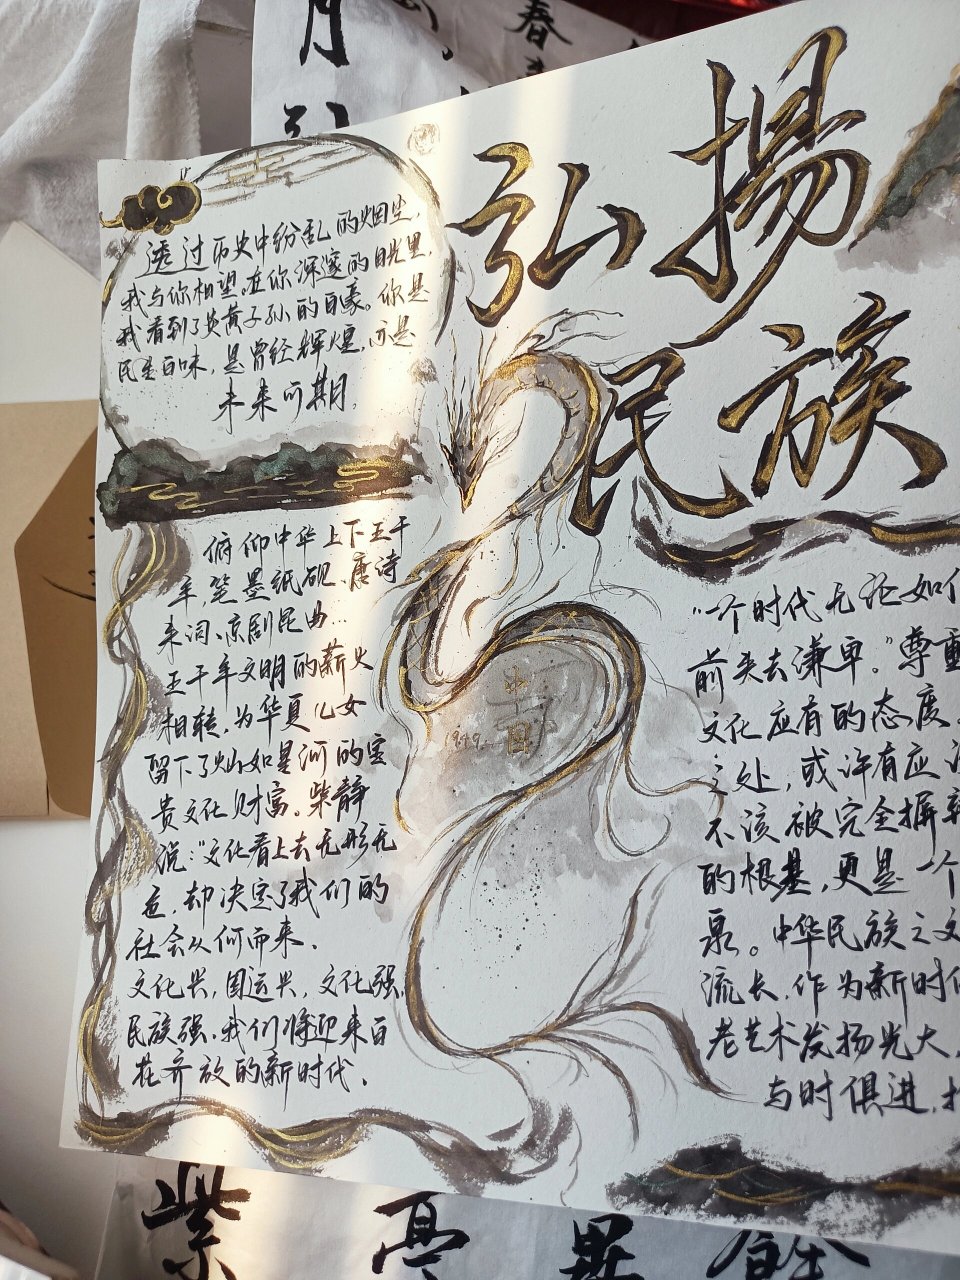 弘揚
民族
透过历史中纷乱的烟尘,
我与你相望。在你深邃的目光里,
我看到了炎黄子孙的自豪。你是
民生百味,是曾经辉煌,亦是
未来可期。
俯仰中华上下五千
年,笔墨纸砚、唐诗
宋词、京剧昆曲...
五千年文明的薪火
相转,为华夏儿女
留下了灿如星河的宝
贵文化财富。柴静
说:"文化看上去无形无
色,却决定了我们的
社会从何而来.
文化兴,国运兴,文化强,
民族强。我们将迎来百
花齐放的新时代.
中
国
1949.
"一个时代无论如
前失去谦卑。"尊重
文化应有的态度
之处,或许有应
不该被完全摒
的根基,更是一个
泉。中华民族之文
流长,作为新时
老艺术发扬光大,
与时俱进,
月
春
紫
亭